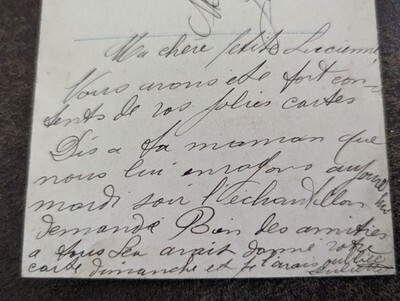 Ma chère petite Lucienne
Nous avons été fort con-
tents de vos jolies cartes
Dis a ta maman que
nous lui envoyons aujourd'hui
mardi soir l'échantillon
demandé Bien des amitiés
a tous Léa avait donné votre
carte dimanche et je l'avais oubliée
Juliette